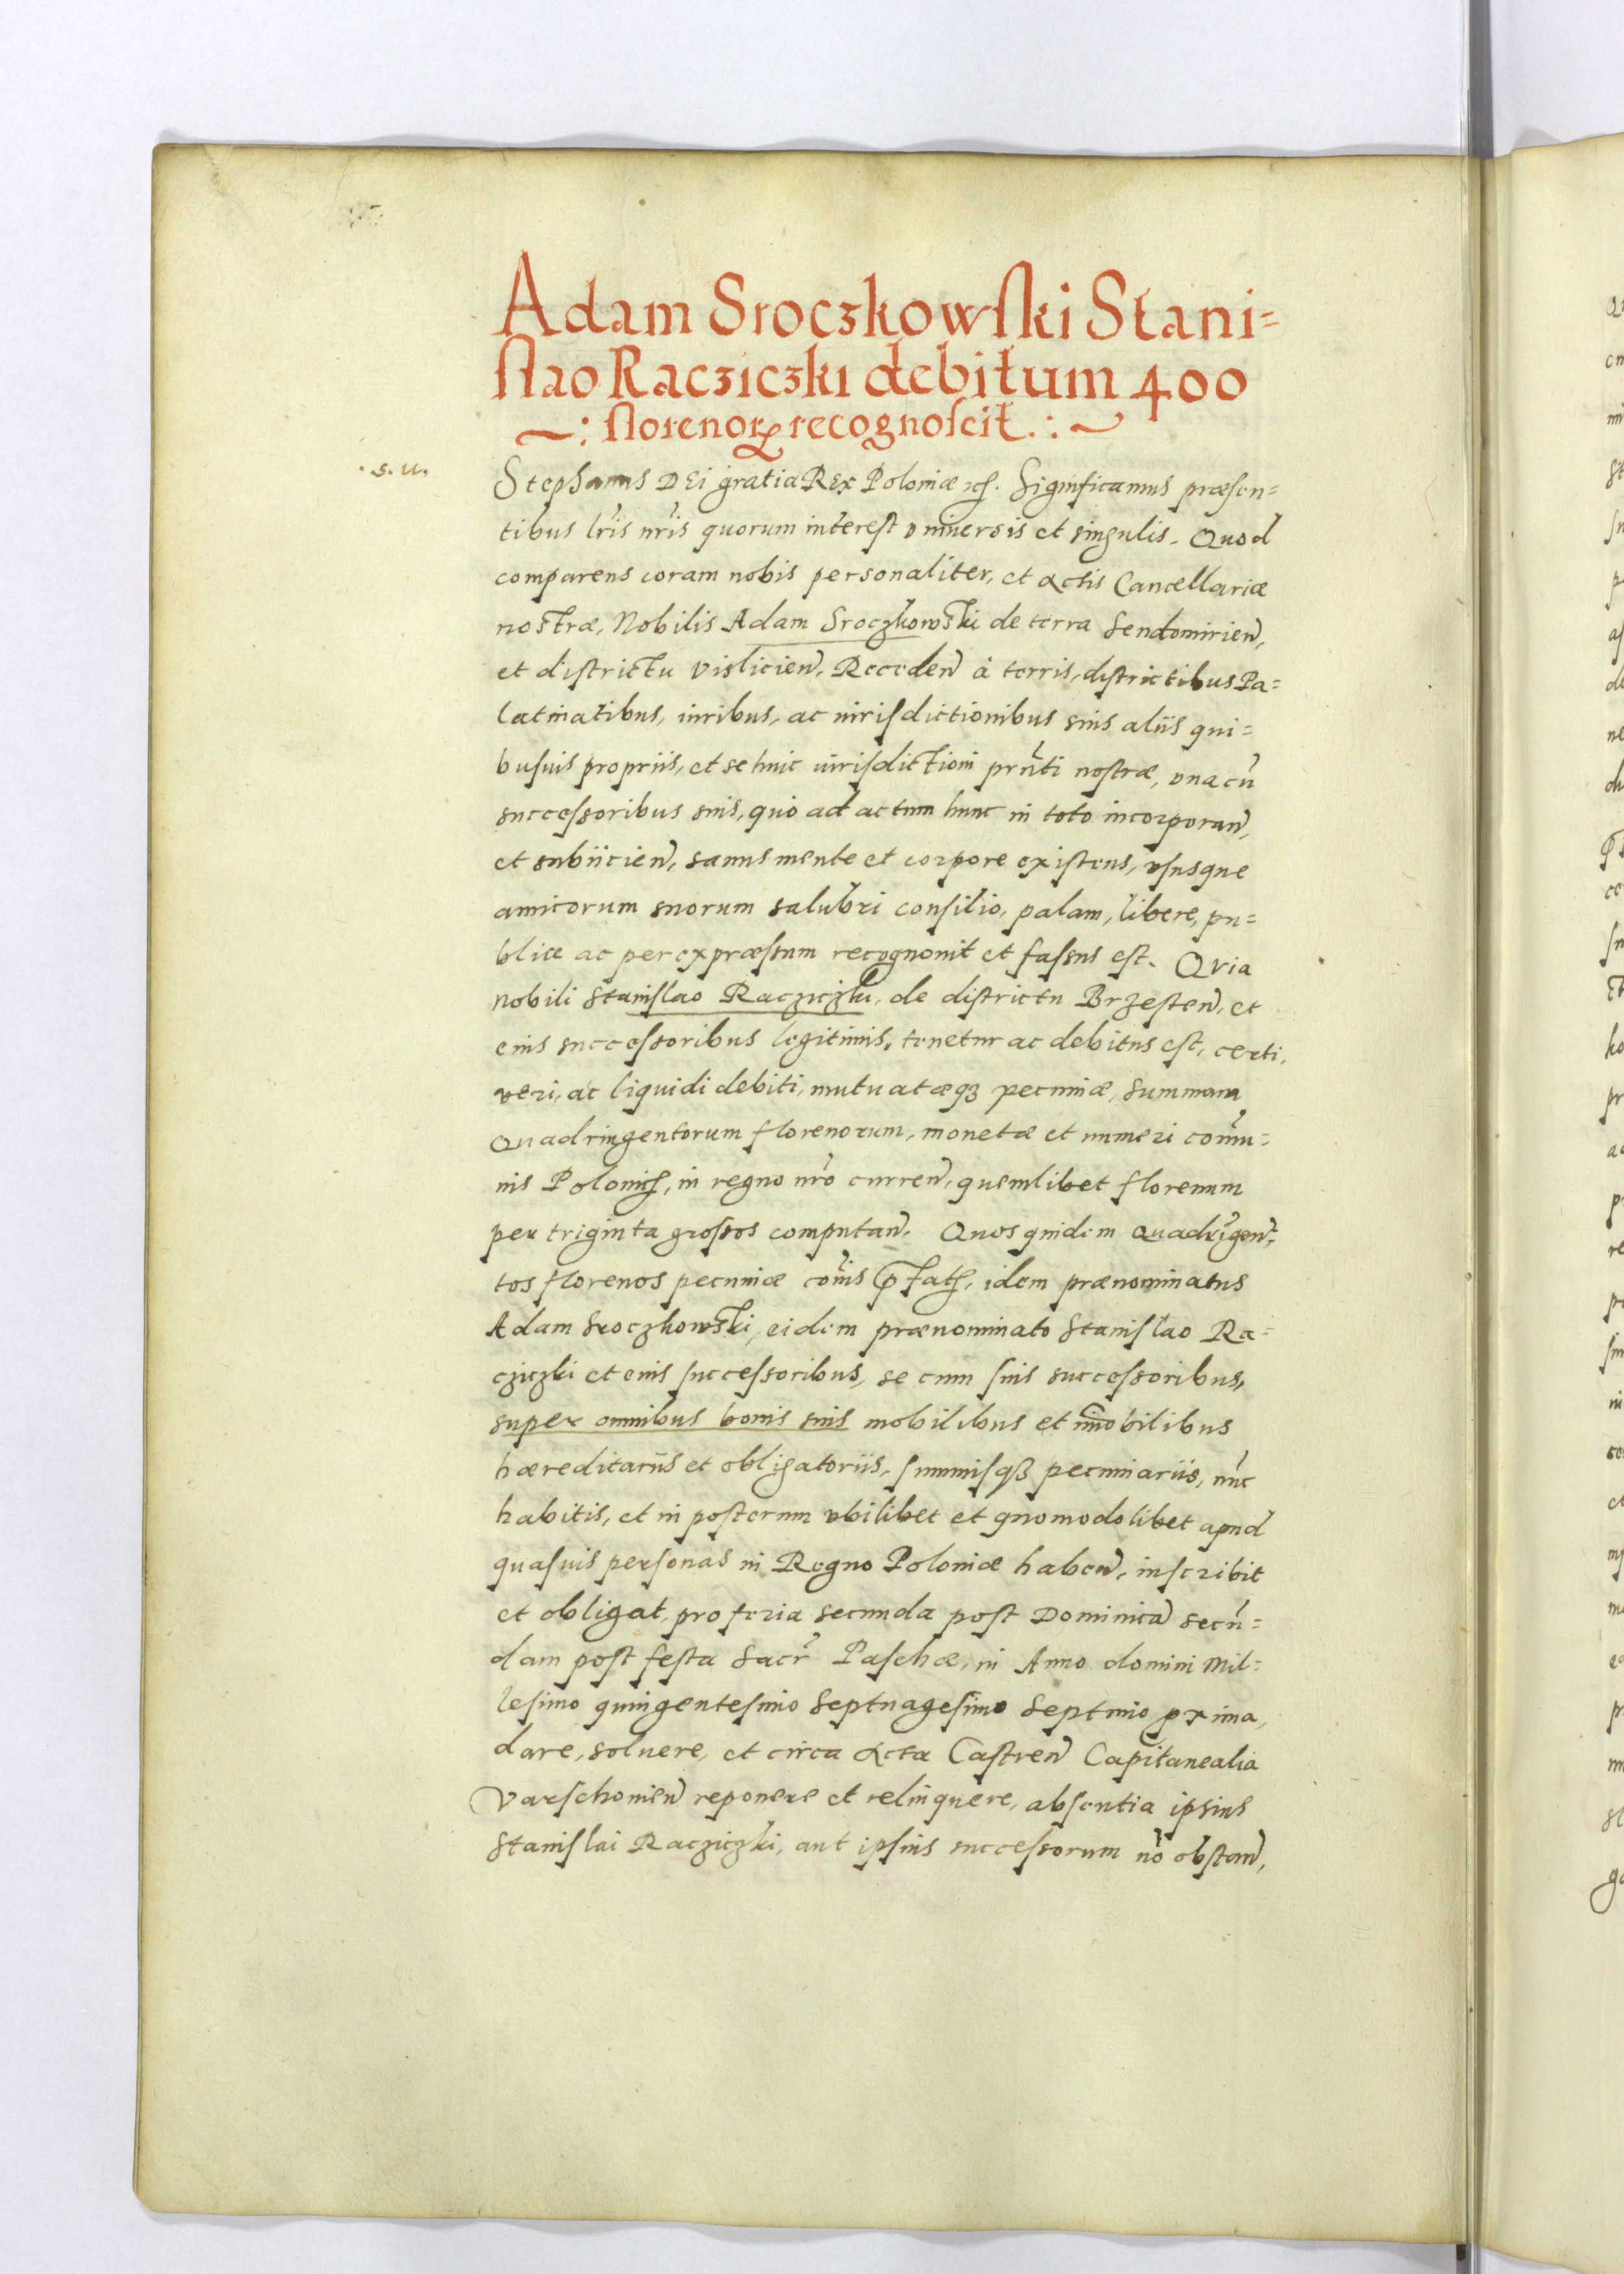 Adam Sroczkowſki Stani=
ſlao Racziczki debitum 400
~ : florenorꝝ recognoſcit .: ~
. S. U.
Stephanus DEi gratia REx Poloniæ etc. Significamus præsen=
tibus lris nris quorum interest vniuersis et singulis. Quod
comparens coram nobis personaliter, et Actis Cancellariæ
nostræ, Nobilis Adam Sroczkowski de terra Sendomirien̄,
et districtu Vislicien̄, Receden̄ à terris, districtibus Pa=
latinatibus, iuribus, ac iurisdictionibus suis aliis qui=
busuis propriis, et se huic iurisdictioni prn̄ti nostræ, vna cū
successoribus suis, quo ad actum hunc in toto incorporan̄,
et subiicien̄, sanus mente et corpore existens, vsusque
amicorum suorum salubri consilio, palam, libere, pu=
blice ac per expræssum recognouit et fassus est. Quia
nobili Stanislao Racziczki, de districtu Brzesten̄, et
eius successoribus legitimis, tenetur ac debitus est, certi,
veri, ac liquidi debiti, mutuatæqꝫ pecuniæ, summam
Quadringentorum florenorum, monetæ et numeri com̄u=
nis Polonicę, in regno nr̄o curren̄, quemlibet florenum
per triginta grossos computan̄. Quos quidem quadrigen̄=
tos florenos pecuniæ com̄is p̄fatę, idem prænominatus
Adam Sroczkowski, eidem prænominato Stanislao Ra=
cziczki et eius successoribus, se cum suis successoribus,
super omnibus bonis suis mobilibus et im̄obilibus
hæreditariis et obligatoriis, summisqꝫ pecuniariis, nūc
habitis, et in posterum vbilibet et quomodolibet apud
quasuis personas in Regno Poloniæ haben̄, inscribit
et obligat, pro feria secunda post Dominicā secū=
dam post festa Sacr̄ Paschæ, in Anno domini Mil=
lesimo quingentesimo Septuagesimo Septimo prima,
dare, soluere, et circa Acta Castren̄ Capitanealia
Varschouien̄ reponere et relinquere, absentia ipsius
Stanislai Racziczki, aut ipsius successorum nō obstan̄,